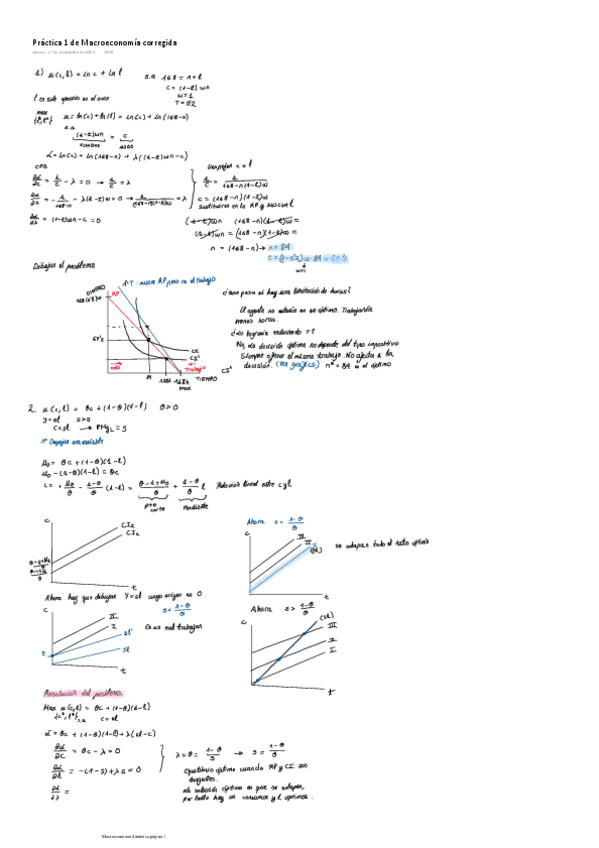 Práctica 1 de Macroeconomía corregida
1) u(c,l) = ln c + ln l
s.a 168 = n + l
c = (1-z) wn
w = 1
T = 0'2
l en este ejercicio es el ocio
max u = ln(c) + ln(l) = ln(c) + ln(168-n)
s.a.
(1-z)wn = c
L = ln(c) + ln(168-n) + λ((1-z)wn - c)
CPO
∂L/∂c = 1/c - λ = 0 → 1/c = λ
∂L/∂n = -1/168-n - λ(1-z)w = 0 → 1/(168-n)(1-z)w = λ
∂L/∂λ = (1-z)wn - c = 0
Despejar c o l
1/c = 1/(168-n)(1-z)w
c = (168-n)(1-z)w
Sustituimos en la RP y buscar l
(1-z)wn = (168-n)(1-z)w =
n = (168-n) → n = 84
Dibujar el problema
DINERO
RP
67'2
CI
CI'
ocio
Trabajo
84
168h
max
TIEMPO
¿Qué pasa si hay una limitación de horas?
El agente no estaría en su óptimo. Trabajaría
menos horas.
¿Lo lograría reduciendo T?
No, la decisión óptima no depende del tipo impositivo
Siempre ofrece el mismo trabajo. No afecta a la
decisión. (Ver gráfico) n* = 84 es el óptimo
2. u(c,l) = θc + (1-θ)(1-l) θ > 0
y = sl s > 0
c = sl → PMgL = s
1º Despejar una variable
u₀ = θc + (1-θ)(1-l)
u₀ - (1-θ)(1-l) = θc
c = u₀/θ - 1-θ/θ (1-l) = θ-1+u₀/θ + 1-θ/θ l Relación lineal entre c y l
pto corte
Pendiente
c
CI₂
CI₁
l
Ahora s = 1-θ/θ
c
III
II
(sl)
se solapan todo el rato óptimo
Ahora hay que dibujar Y = sl cuyo origen es 0
s < 1-θ/θ
c
II
I
sl'
sl
l
Es un no trabajar
Ahora s > 1-θ/θ
c
(sl)
III
II
I
l
Resolución del problema
Max u(c,l) = θc + (1-θ)(1-l)
{c*, l*} s.a c = sl
L = θc + (1-θ)(1-l) + λ(sl-c)
∂L/∂c = θc - λ = 0
∂L/∂l = -(1-s) + λs = 0
∂L/∂λ =
λ = θ = 1-θ/s → s = 1-θ/θ
Equilibrio óptimo cuando RP y CI son
tangentes.
La solución óptima es que se solapan,
por tanto hay un consumo y l óptimos.
Macroeconomía dinámica página 1